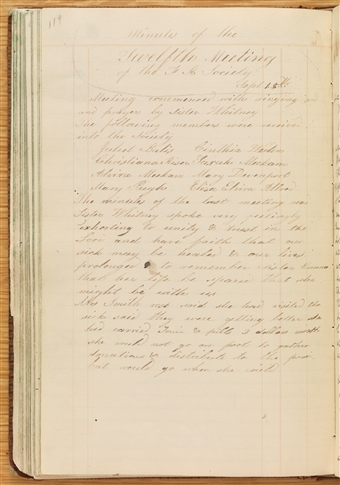 119
Minutes of the
Twelfth Meeting
of the F. R. Society
Sept 15th
Meeting commenced with singing
and prayer by Sister Whitney
The following members were receive
into the Society
Juliet Cinthia
Christiana
Mary Davenport
Mary Eliza
The minutes of the last meeting
Sister Whitney spoke very feelingly
exhorting to unity & trust in the
and have faith that our
sick may be healed & our lives
prolonged to remember sister
that her life be spared that she
might be with us
Mrs Smith said she had visited the
sick said they were getting better she
had carried & pills 2 dollars worth
she would not go on foot to gather
donations & distribute to the poor
but would go when she could